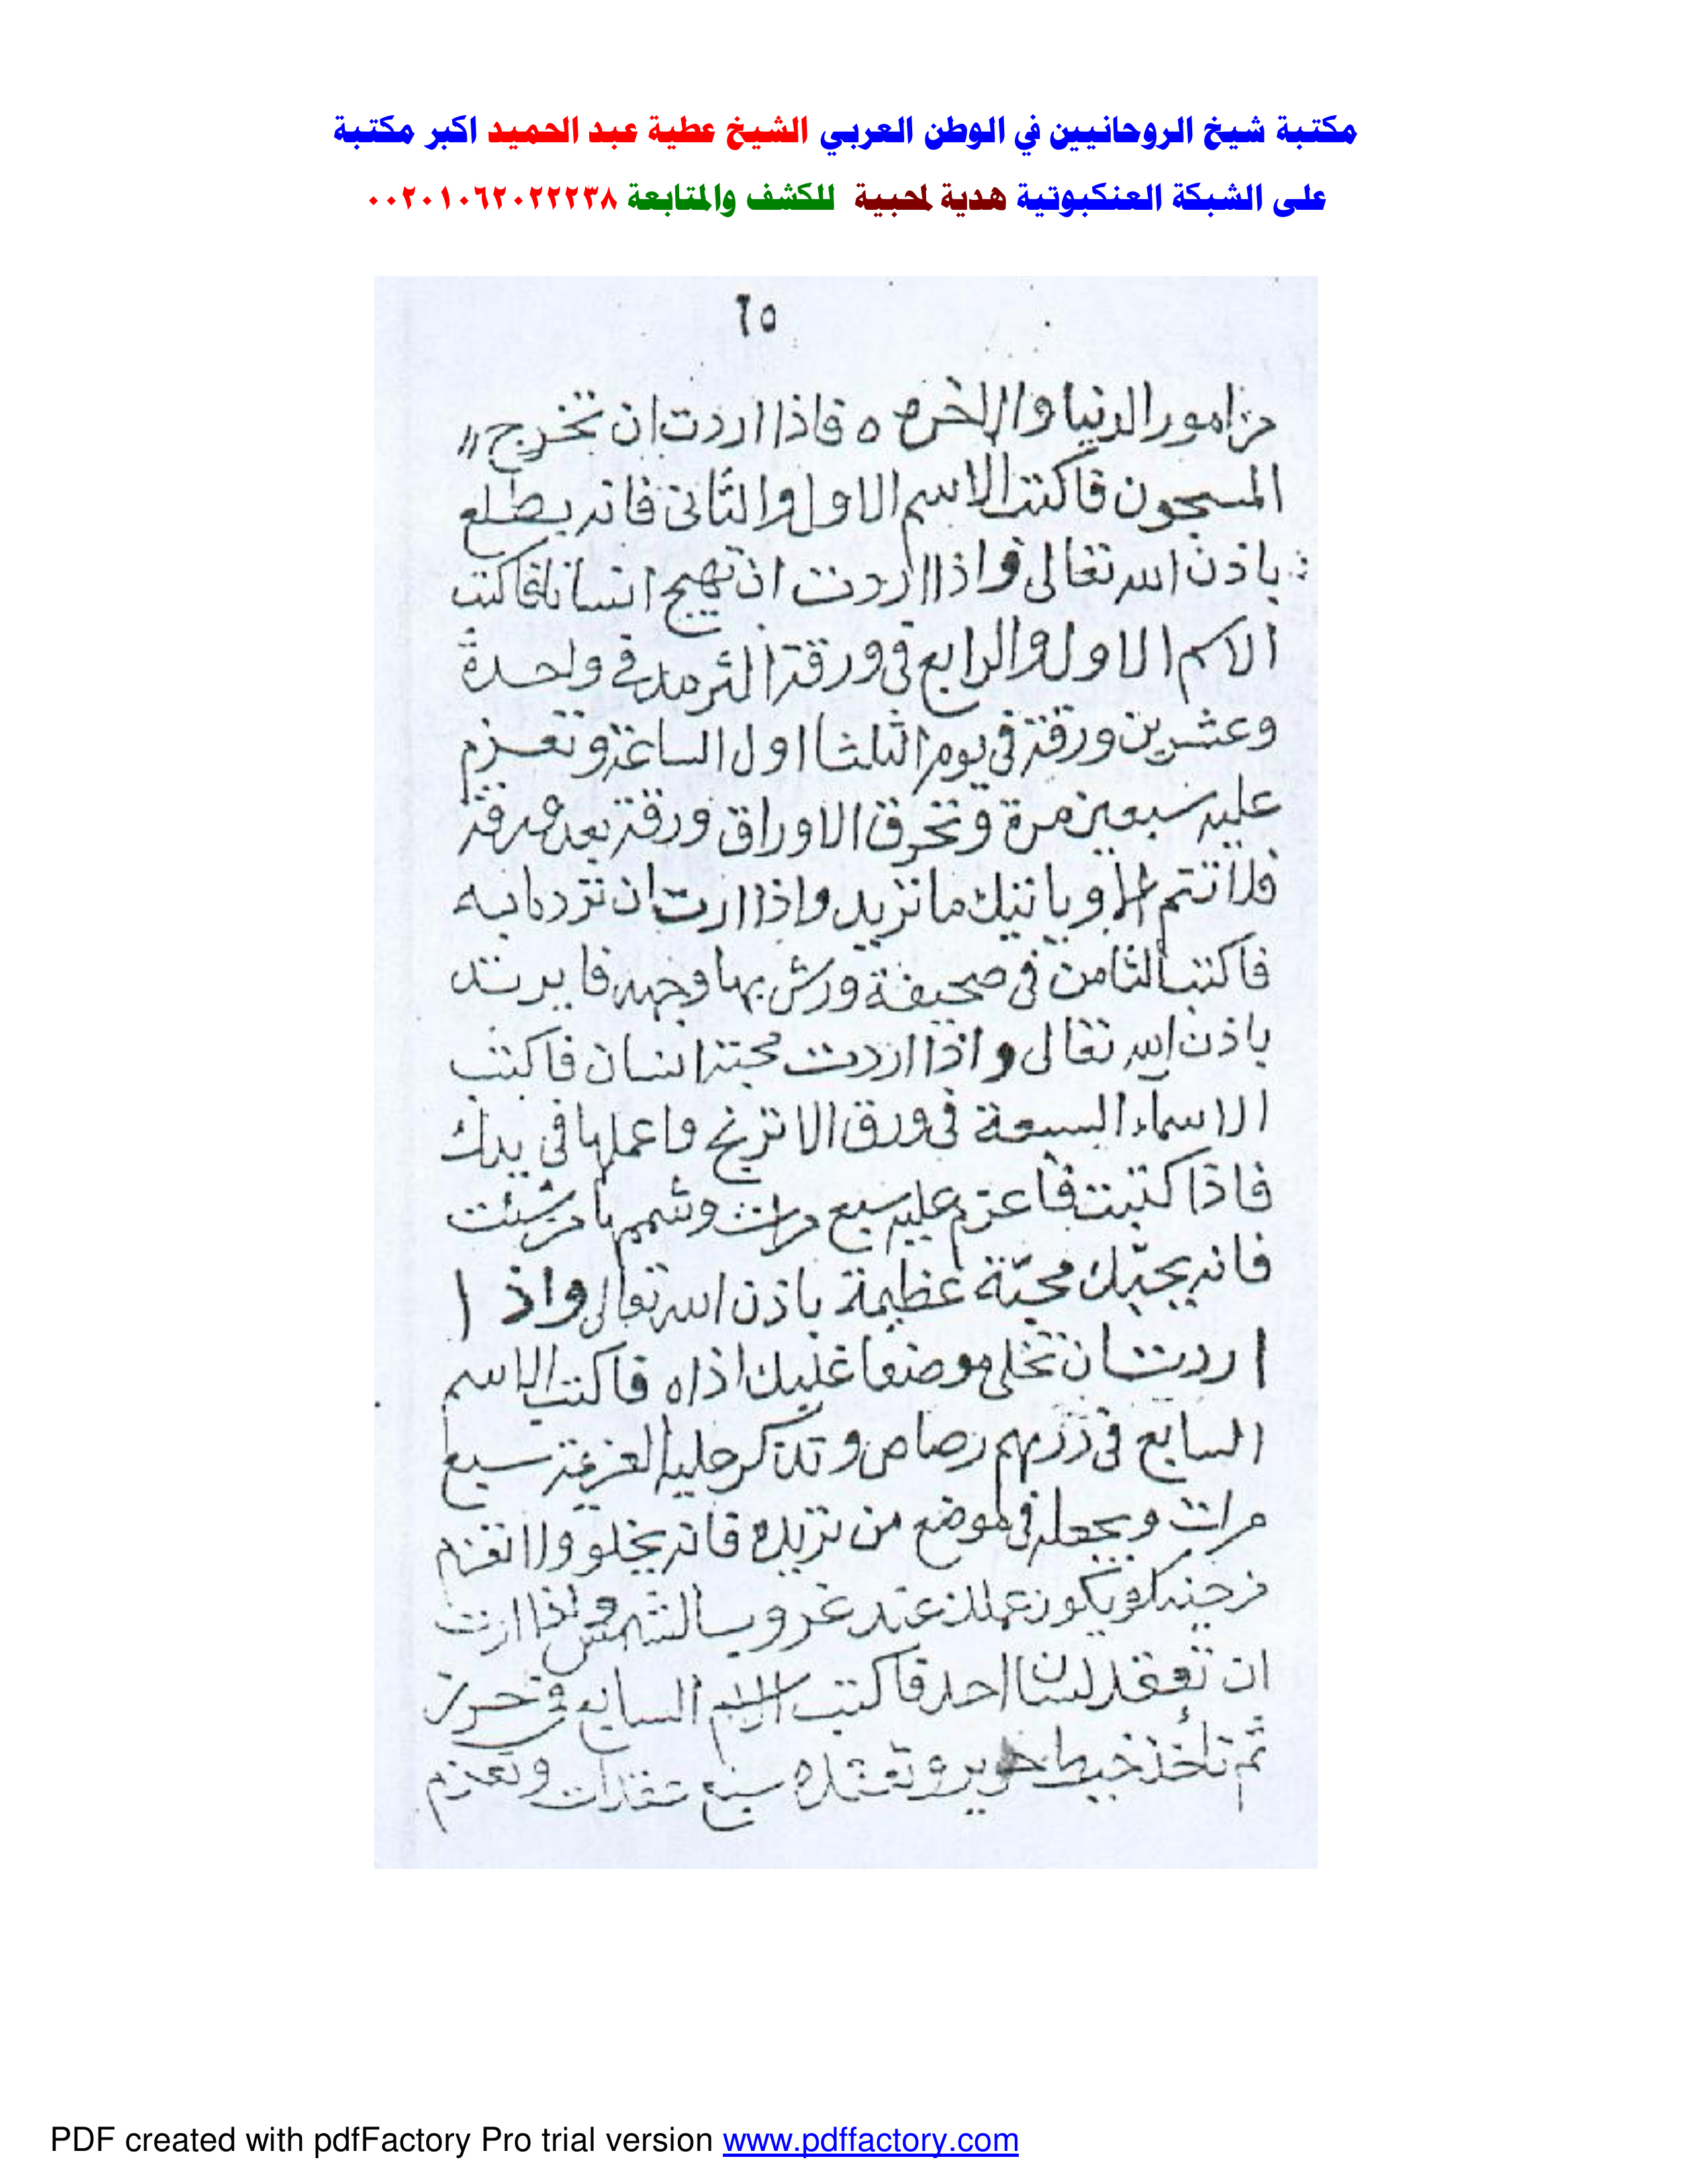 مكتبة شيخ الروحانيين في الوطن العربي الشيخ عطية عبد الحميد اكبر مكتبة
على الشبكة العنكبوتية هدية لمحبية للكشف والمتابعة ٠٠٢٠١٠٦٢٠٢٢٢٣٨
٦٥
من امور الدنيا والاخره ه فاذا اردت ان تخرج
المسجون فاكتب الاسم الاول والثاني فانه يطلع
باذن الله تعالى واذا اردت ان تهيج انسانا فاكتب
الاسم الاول والرابع في ورقة في واحدة
وعشرين ورقة في يوم الثلثا اول الساعة وتعزم
عليه سبعين مرة وتحرق الاوراق ورقة بعد ورقة
فلا تتم الا وياتيك ما تريد واذا اردت ان ترد
فاكتب الثامن في صحيفة ورش بها وجهه فا يرتد
باذن الله تعالى واذا اردت محبة انسان فاكتب
الاسماء السبعة في ورق الاترنج واعملها في يدك
فاذا كتبت فاعزم عليه سبع مرات وشممها من شئت
فانه يحبك محبة عظيمة باذن الله تعالى واذ ا
اردت ان تخلي موضعا عليك اذاه فاكتب الاسم
السابع في درهم رصاص وتذكر عليه العزيمة سبع
مرات ويجعله في موضع من تريده فانه يخلو
ويكون عملك عند غروب الشمس واذا اردت
ان تعقد لسان احد فاكتب الاسم السابع في حرير
ثم تاخذ خيط حرير وتعقده سبع عقدات وتعزم
PDF created with pdfFactory Pro trial version www.pdffactory.com